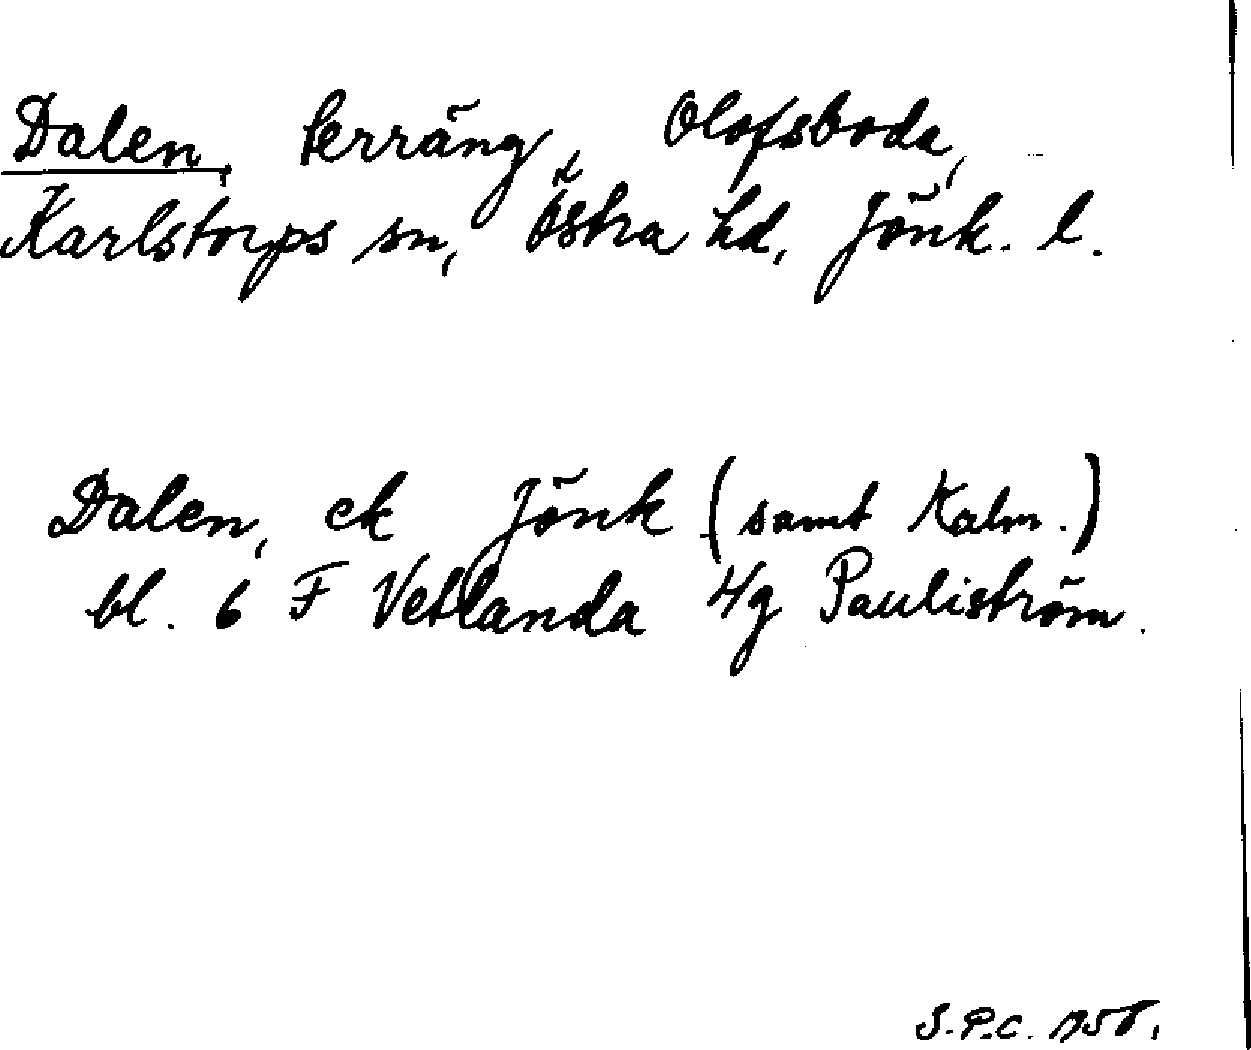 Dalen, terräng, Olofsboda,
Karlstorps sn, Östra hd, Jönk. l.
Dalen, ek Jönk (samt Kalm.)
bl. 6 F Vetlanda 4g Pauliström.
S.P.C. 1958.